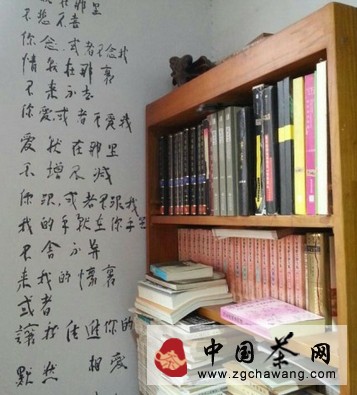 在那里
不悲不喜
你念,或者不念我
情就在那裏
不来不去
你爱,或者不爱我
爱就在那里
不增不减
你跟,或者不跟我
我的手就在你手里
不舍不弃
来我的懷裏
或者
讓我住进你的
默然 相爱
中国茶网
www.zgchawang.com